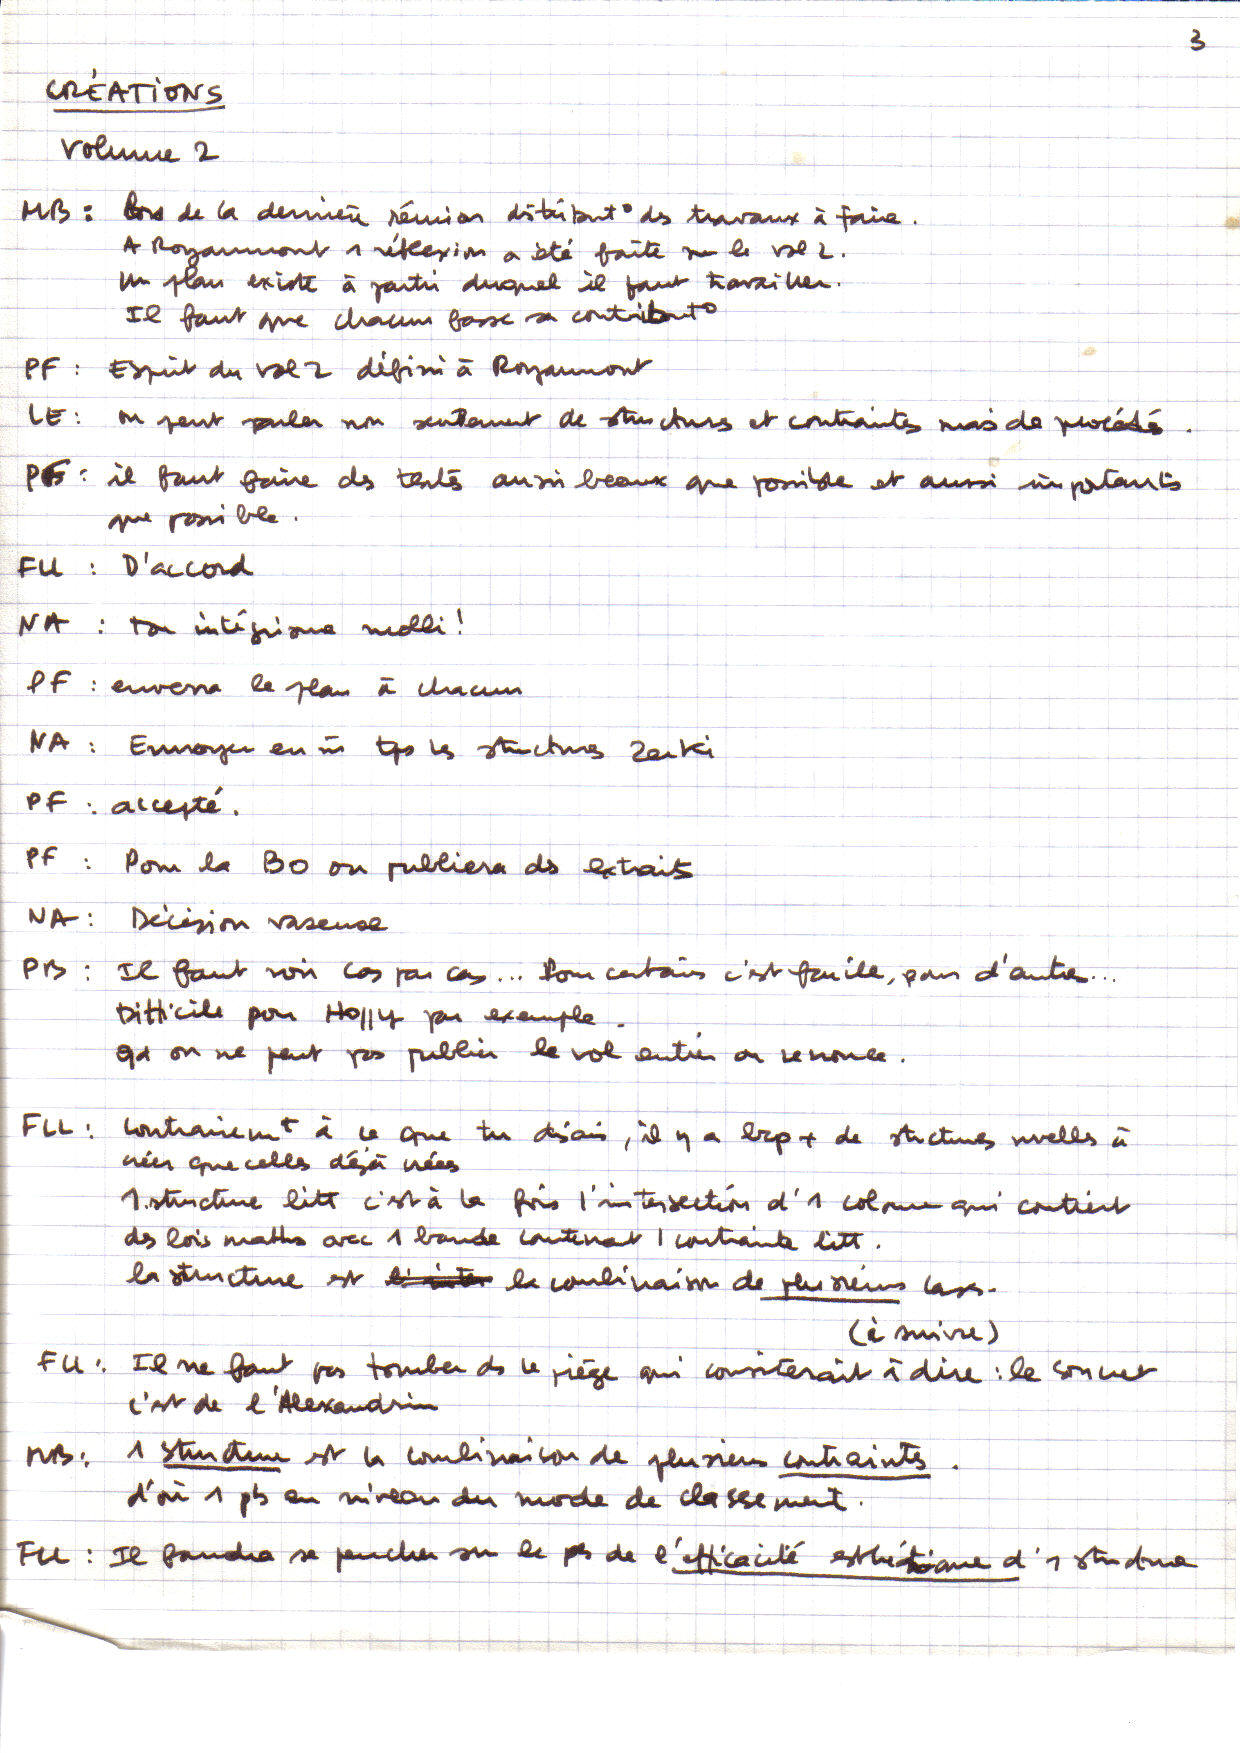 3
CRÉATIONS
Volume 2
MB : Lors de la dernière réunion distribut° des travaux à faire.
A Royaumont 1 réflexion a été faite sur le vol 2.
Un plan existe à partir duquel il faut travailler.
Il faut que chacun fasse sa contribut°
PF : Esprit du vol 2 défini à Royaumont
LE : on peut parler non seulement de structures et contraintes mais de procédés.
PF : il faut faire des textes aussi beaux que possible et aussi importants
que possible.
FLL : D'accord
NA : ton intégrisme mollit !
PF : enverra le plan à chacun
NA : Envoyer en m̄ tps les structures
PF : accepté.
PF : Pour la BO on publiera ds extraits
NA : Décision vaseuse
PB : Il faut voir cas par cas... Pour certains c'est facile, pour d'autres...
Difficile pour par exemple.
qd on ne peut pas publier le vol entier on renonce.
FLL : Contrairemt à ce que tu disais, il y a bcp + de structures nvelles à
créer que celles déjà créées
1 structure litt c'est à la fois l'intersection d'1 colonne qui contient
des lois maths avec 1 bande contenant 1 contrainte litt.
la structure est la combinaison de plusieurs cases.
(à suivre)
FLL : Il ne faut pas tomber ds le piège qui consisterait à dire : le sonnet
c'est de l'Alexandrin
MB : 1 structure est la combinaison de plusieurs contraintes.
d'où 1 pb au niveau du mode de classement.
FLL : Il faudra se pencher sur le pb de l'efficacité esthétique d'1 structure